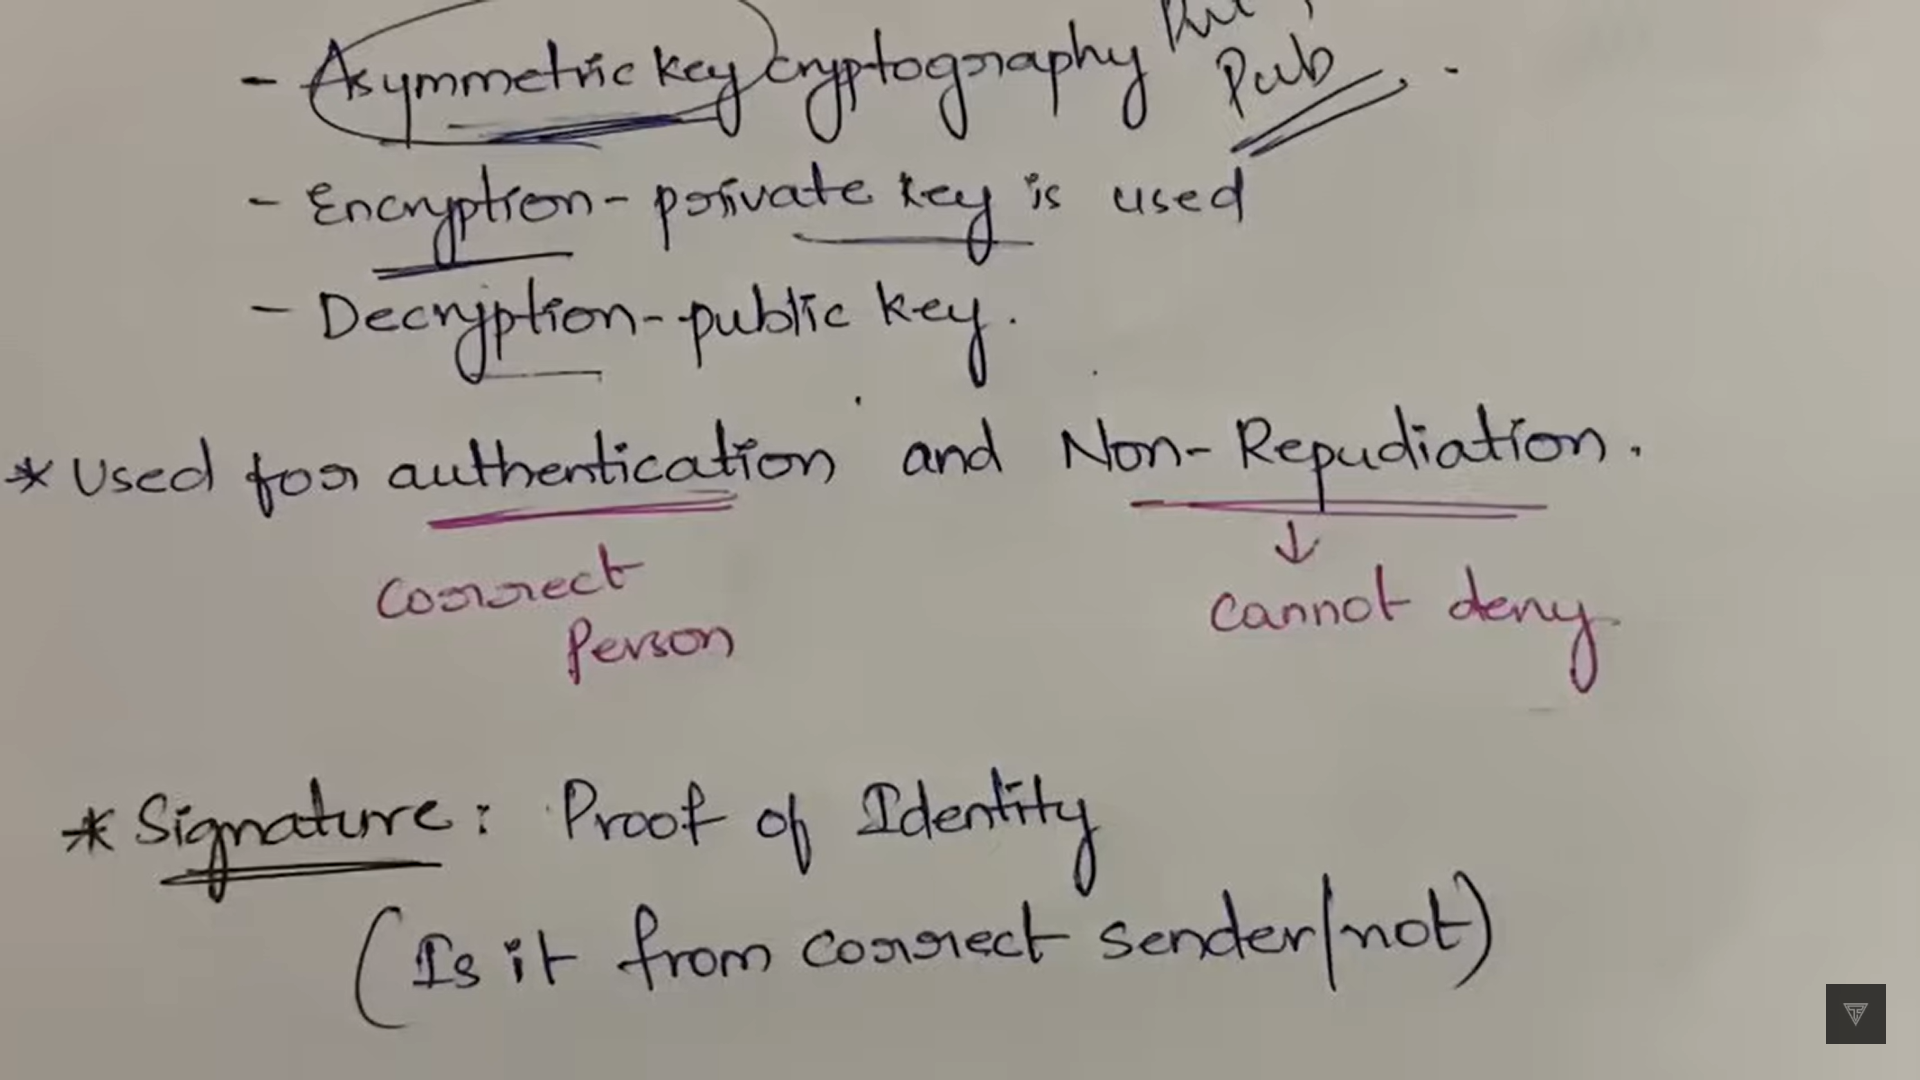 - Asymmetric key cryptography
Pub
- Encryption - private key is used
- Decryption - public key.
* Used for authentication and Non-Repudiation.
correct
Person
↓
cannot deny
* Signature: Proof of Identity
(Is it from correct sender/not)